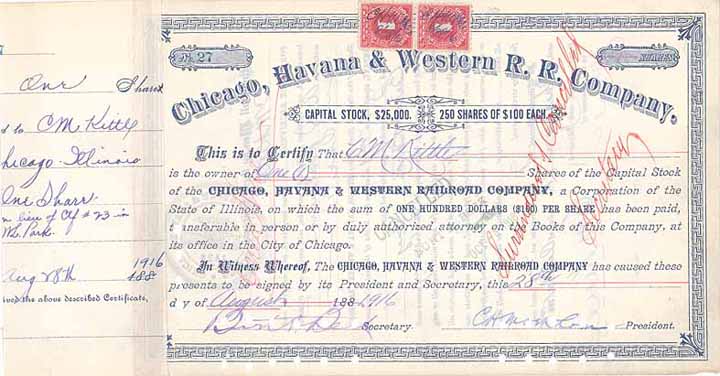 One Shares
C M Kittle
Chicago Illinois
One Share
in lieu of Ctf # 23 in
Park
1916
Aug 28th 188
ived the above described Certificate,
No. 27
SHARES
Chicago, Havana & Western R. R. Company.
CAPITAL STOCK, $25,000. 250 SHARES OF $100 EACH.
This is to Certify That C M Kittle
is the owner of One (1) Shares of the Capital Stock
of the CHICAGO, HAVANA & WESTERN RAILROAD COMPANY, a Corporation of the
State of Illinois, on which the sum of ONE HUNDRED DOLLARS ($100) PER SHARE has been paid,
transferable in person or by duly authorized attorney on the Books of this Company, at
its office in the City of Chicago.
In Witness Whereof, The CHICAGO, HAVANA & WESTERN RAILROAD COMPANY has caused these
presents to be signed by its President and Secretary, this 28th
day of August 188 1916
Secretary. President.
CANCELLED
Surrendered & Cancelled
Secretary